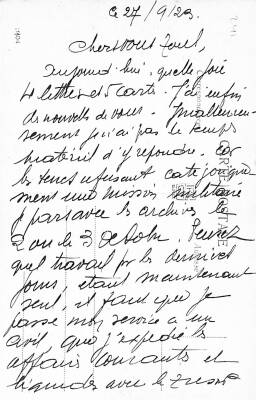 Le 27/9/23.
Chers vous Tous,
Aujourd'hui, quelle joie
4 lettres et 5 carte. J'ai enfin
des nouvelles de vous. Malheureu-
sement je n'ai pas le temps
matériel d'y répondre. Car
les turcs refusant catégorique-
ment une mission militaire
je pars avec les archives le
2 ou le 3 Octobre. Pensez
quel travail pr les derniers
jours, étant maintenant
seul, il faut que je
passe mon service à un
civil, que j'expédie les
affaires courantes et
liquider avec le